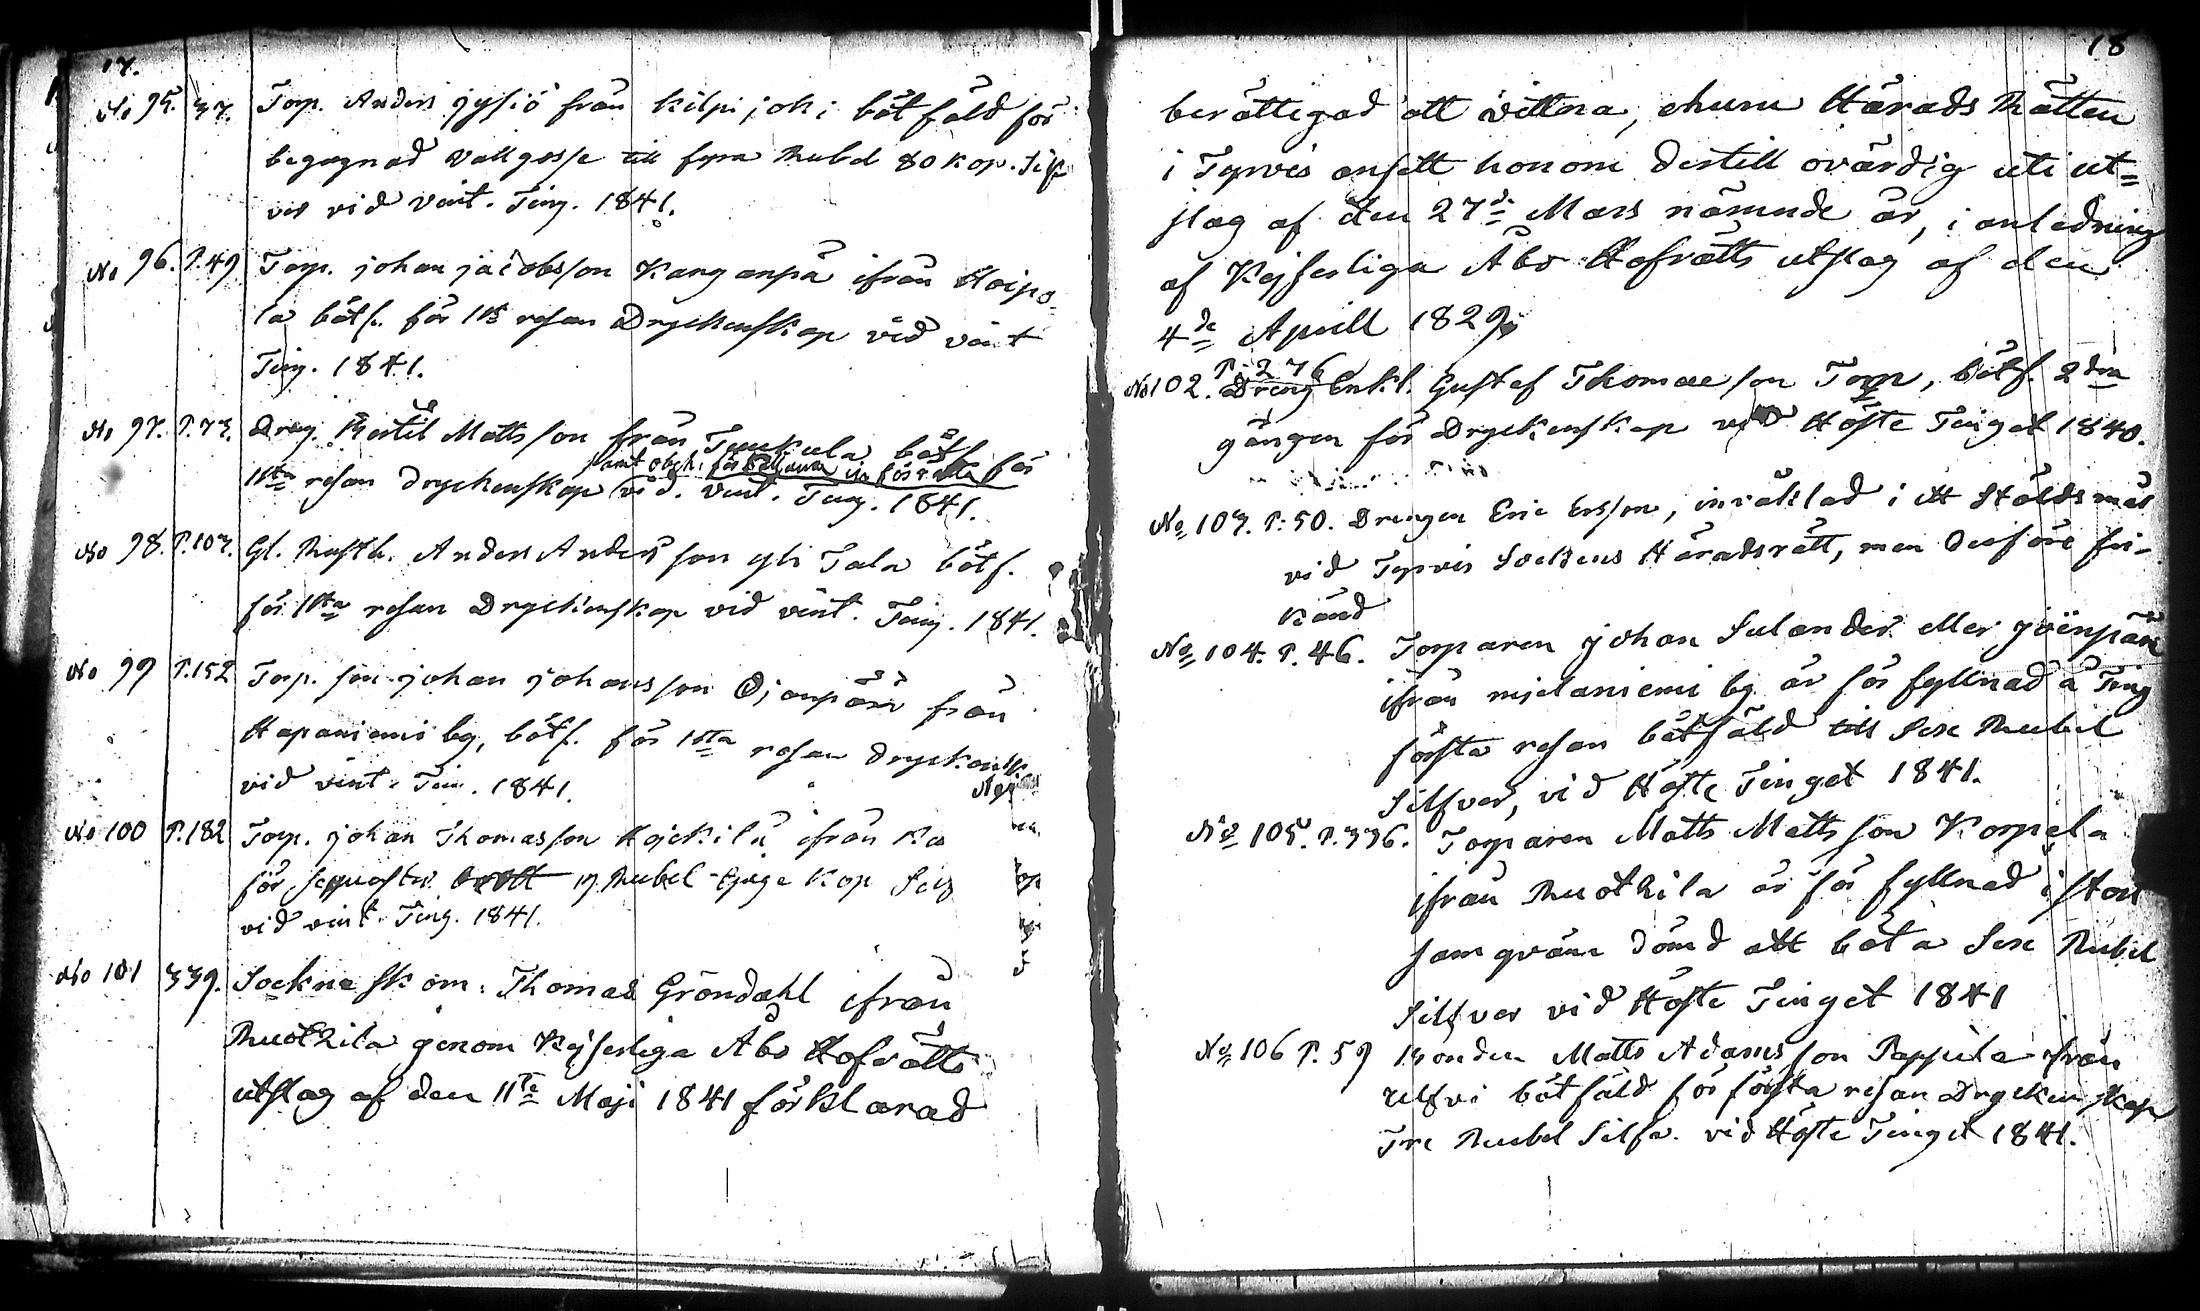 17.
No 95. 37. Torp. Anders jysiö från Kilpijoki bötfäld för
begagnad vallgosse till fyra Rubel 80 kop. Silf
ver vid vint. Ting. 1841.
No 96. P. 49 Torp. johan jacobsson Kanganpä ifrån Hoipo-
la bötf. för 1sta resan Dryckenskap vid vint
Ting. 1841.
No 97. P. 73. Dreng. Bertil Mattsson från Tuukula bötf. för
samt obeh. för
1sta resan dryckenskap vid. vint. Ting. 1841.
No 98. P. 103. Gl. Rusth. Anders Andersson yli Tala bötf.
för 1sta resan Dryckenskap vid vint. Ting. 1841.
No 99 P. 152 Torp. son johan johansson Ojanpää från
Hapaniemi by, bötf. för 1sta resan dryckensk
vid vint. Tin. 1841.
No 100 P. 182 Torp. johan Thomasson Kojkilä ifrån Ka
för sequester Rubel kop Silf
vid vint. Ting. 1841.
No 101 339. Sockne skom. Thomas Gröndahl ifrån
Ruothila genom Kejserliga Åbo Hofrätts
utslag af den 11te Maji 1841 förklarad
18
berättigad att vittna, ehuru Härads Rätten
i Tyrvis ansett honom dertill ovärdig uti ut=
slag af den 27de Mars nämnde år, i anledning
af Kejserliga Åbo Hofrätts utslag af den
4de Aprill 1829.
P. 276
No 102. Dreng Enkl. Gustaf Thomasson Torp, bötf. 2dra
gången för Dryckenskap vid Höste Tinget 1840.
No 103. P. 50. Drengen Eric Ersson, inväklad i ett Stöldsmål
vid Tyrvis Sockens Häradsrätt, men derföre fri-
känd
No 104. P. 46. Torparen johan Sulander eller jvänpää
ifrån mielaniemi by är för fyllnad å Ting
första resan bötfäld till Sex Rubel
Silfver, vid Höste Tinget 1841.
No 105. P. 336. Torparen Matts Mattsson Korpela
ifrån Ruothila är för fyllnad i ston
sam qväm dömd att böta Sex Rubel
Silfver vid Höste Tinget 1841
No 106 P. 59 Bonden Matts Adamsson Pappila från
Ulfvi bötfäld för första resan Dryckenskap
Tre Rubel Silfv. vid Höste Tinget 1841.